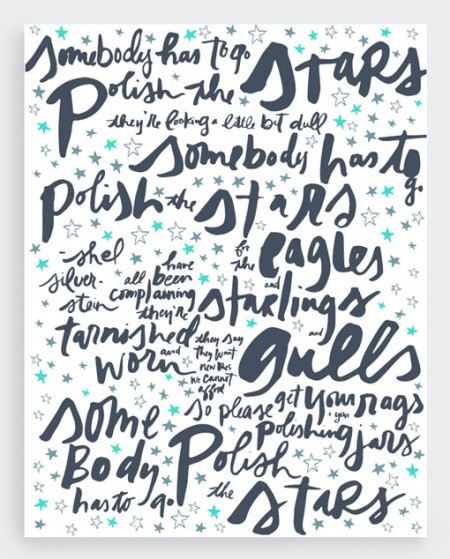 somebody has to go
Polish the STARS
they're looking a little bit dull
somebody has to go
polish the stars
for the eagles
and starlings
and gulls
shel
silver.
stein
have
all been
complaining
they're
tarnished
and worn
they say
they want
new ones
we cannot
afford
so please get your rags
+ your polishing jars
some
Body
has to go
Polish
the stars